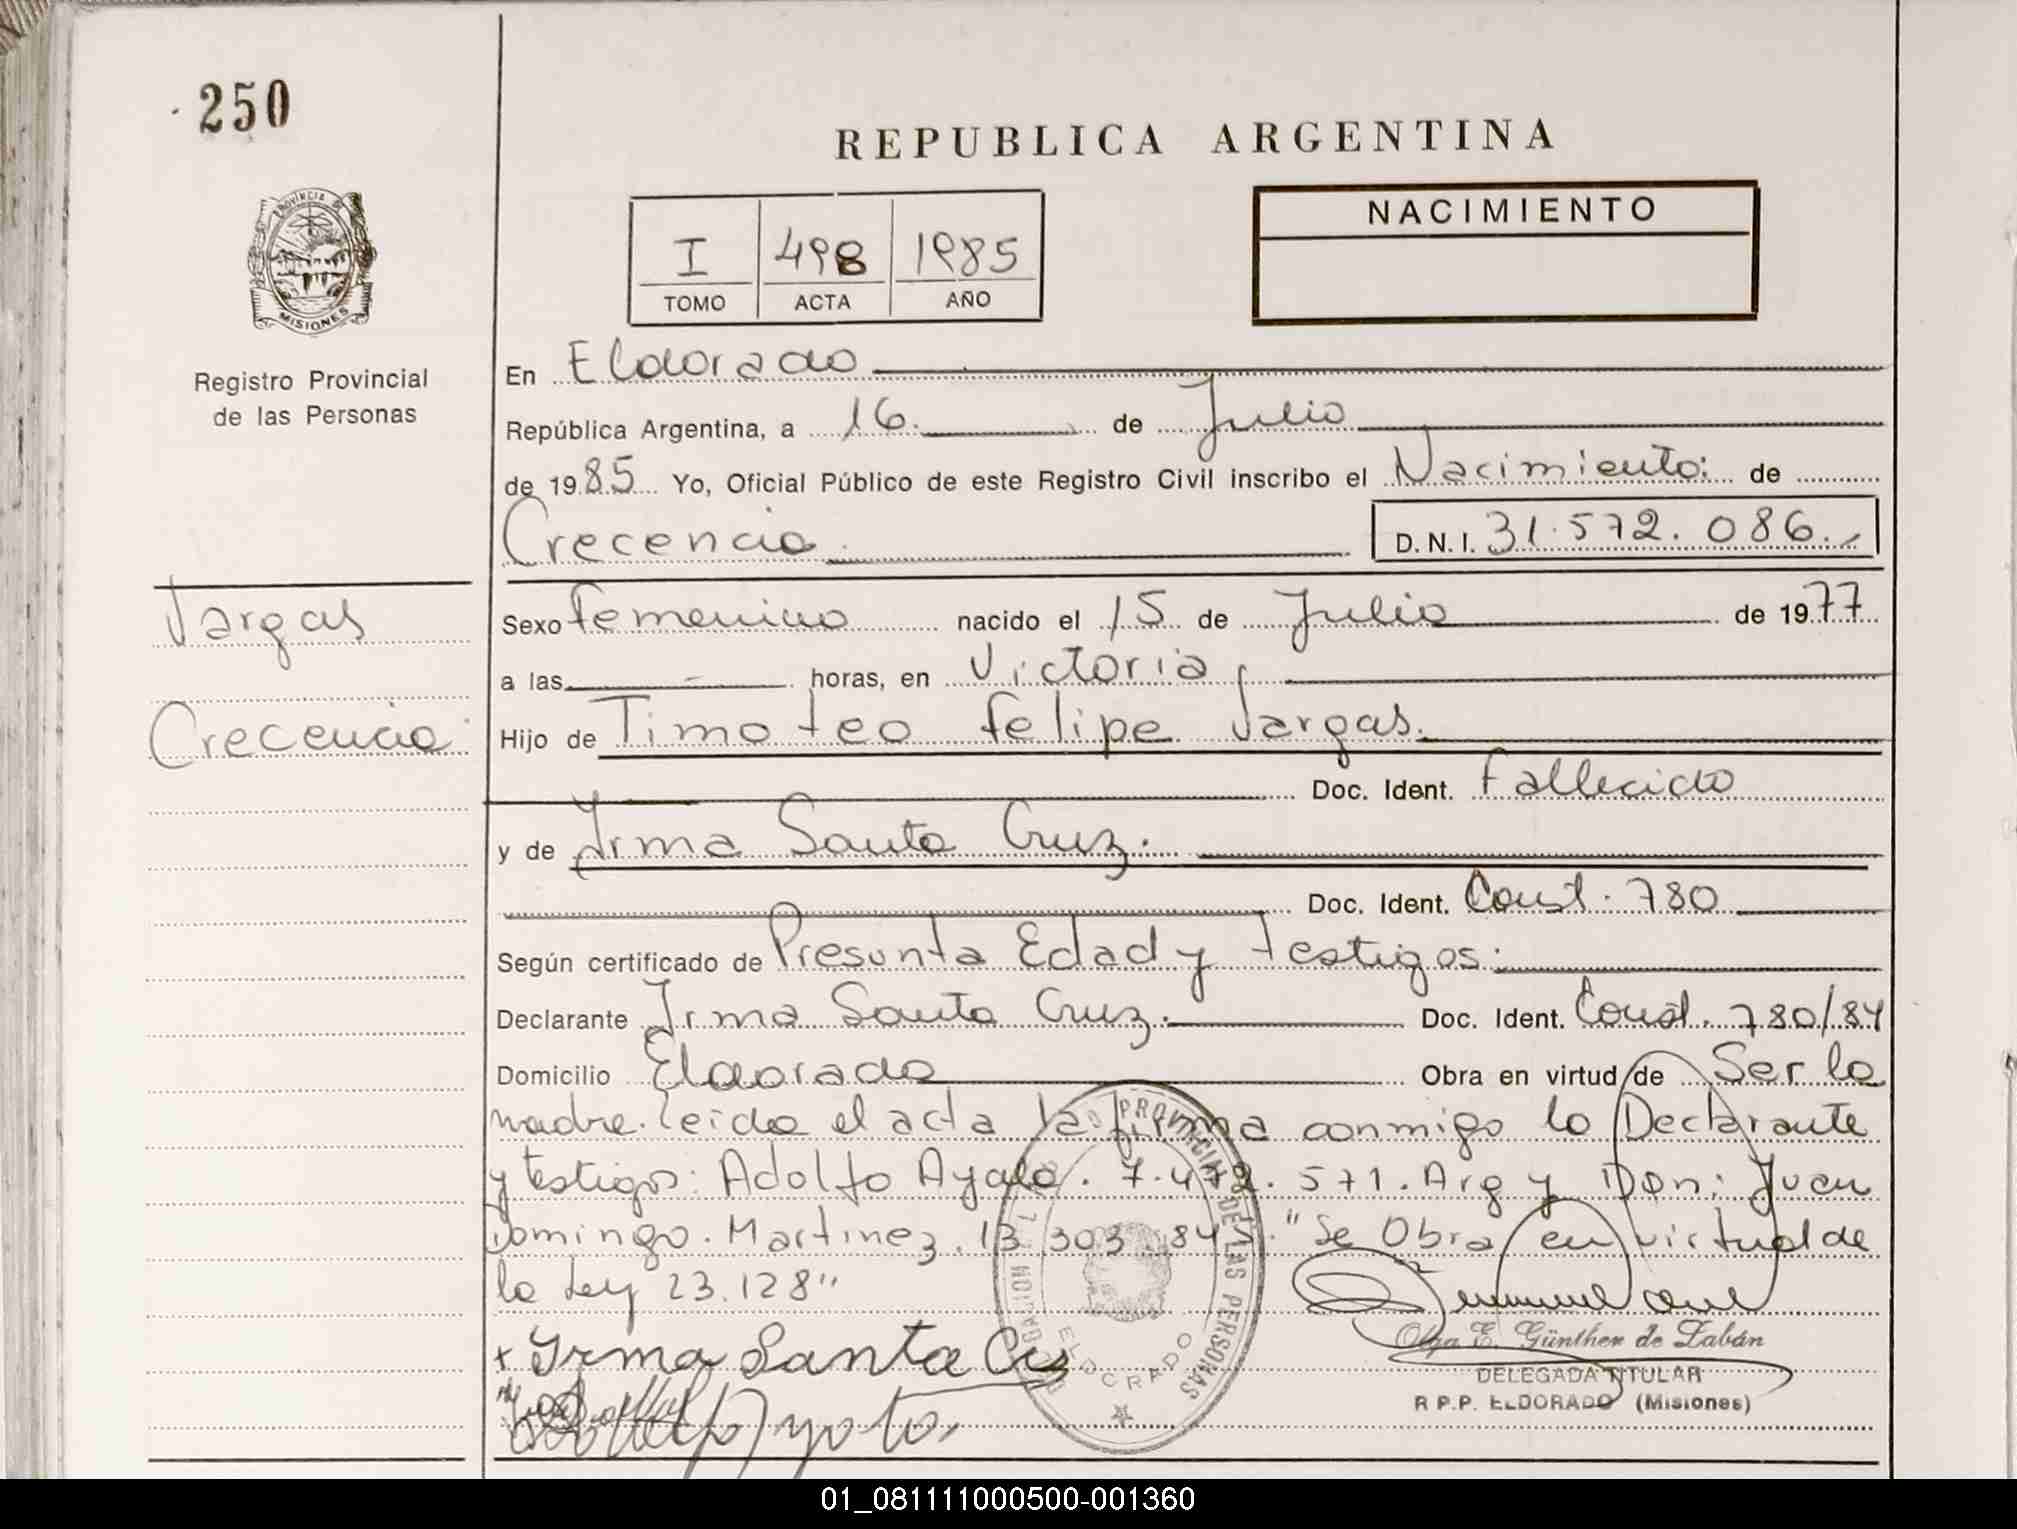 250
REPUBLICA ARGENTINA
PROVINCIA DE
MISIONES
Registro Provincial
de las Personas
I 498 1985
TOMO ACTA AÑO
NACIMIENTO
En Eldorado
República Argentina, a 16 de Julio
de 1985 Yo, Oficial Público de este Registro Civil inscribo el Nacimiento: de
Crecencia D.N.I. 31.572.086.
Vargas
Crecencia
Sexo femenino nacido el 15 de Julio de 1977
a las - horas, en Victoria,
Hijo de Timoteo Felipe Vargas.
Doc. Ident. Fallecido
y de Irma Santa Cruz.
Doc. Ident. Const. 780
Según certificado de Presunta Edad y testigos:
Declarante Irma Santa Cruz. Doc. Ident. Const. 780/84
Domicilio Eldorado Obra en virtud de Ser la
madre. Leida el acta la firma conmigo la Declarante
y testigos: Adolfo Ayala. 7.472.571. Arg y Don: Juan
Domingo. Martinez. 13 303 "Se Obra en virtud de
la Ley 23.128"
x Irma Santa Cruz
Olga E. Günther de Zabán
DELEGADA TITULAR
R P.P. ELDORADO (Misiones)
PROVINCIAL DE LAS PERSONAS
ELDORADO
01_081111000500-001360